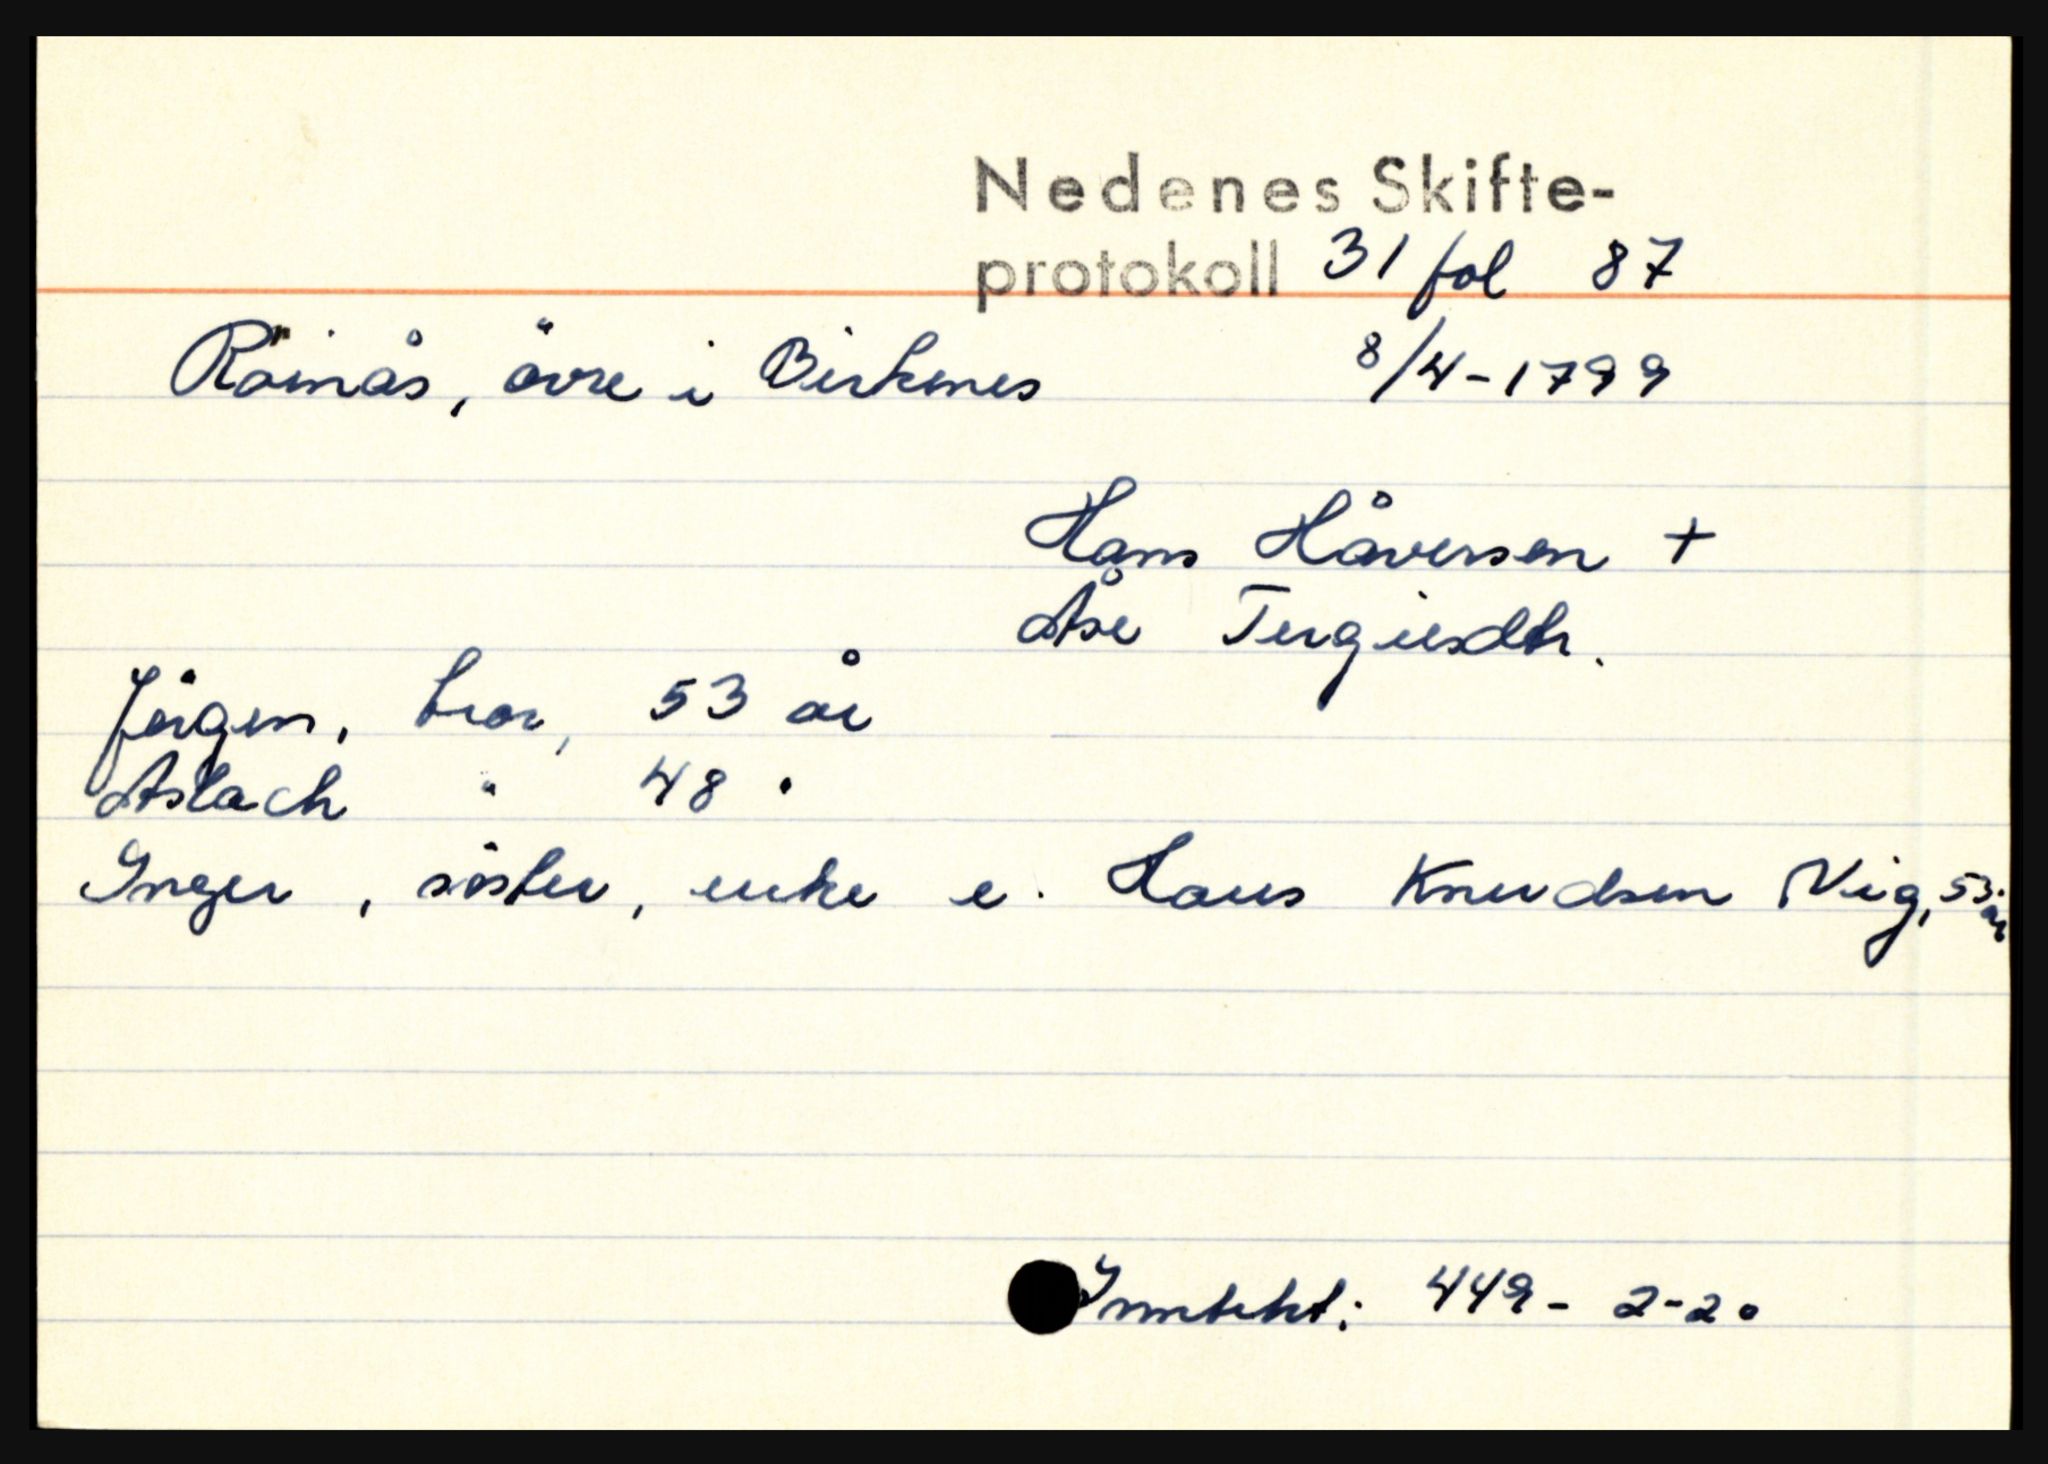 Nedenes Skifte-
protokoll 31 fol 87
Röinås, övre i Birkenes 8/4-1799
Hans Håversen +
Åse Tergiesdtr.
Jörgen, bror, 53 år
Aslach " 48 "
Inger, söster, enke e. Hans Knudsen Vig, 53 år
Inntekt: 449 - 2-20